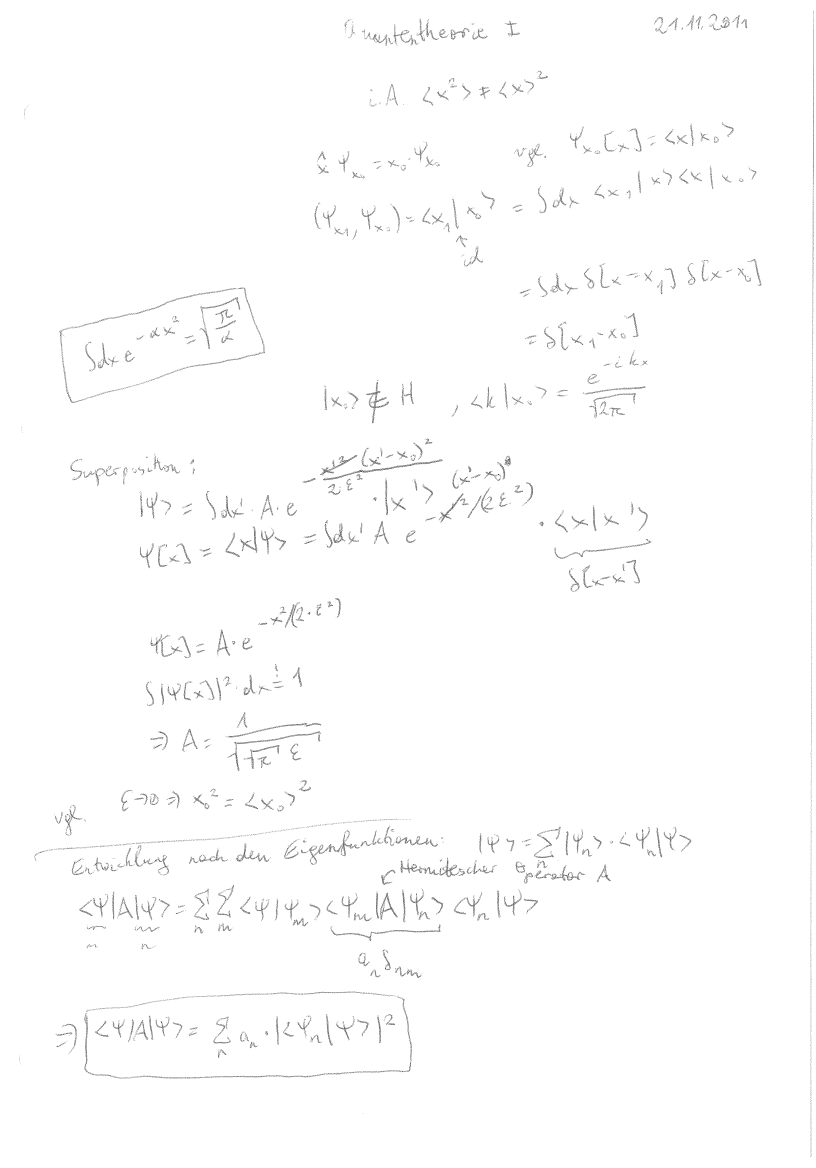 Quantentheorie I 21.11.2011
i.A. <x²> ≠ <x>²
x̂ Ψ_x₀ = x₀·Ψ_x₀ vgl. Ψ_x₀[x] = <x|x₀>
(Ψ_x₁, Ψ_x₀) = <x₁|x₀> = ∫dx <x₁|x><x|x₀>
↑
id
= ∫dx δ[x-x₁] δ[x-x₀]
= δ[x₁-x₀]
∫dx e^(-αx²) = √(π/α)
|x₀> ∉ H , <k|x₀> = e^(-ikx) / √(2π)
Superposition:
|Ψ> = ∫dx' · A · e^(-(x'-x₀)²/(2·ε²)) · |x'>
Ψ[x] = <x|Ψ> = ∫dx' A e^(-(x'-x₀)²/(2ε²)) · <x|x'>
δ[x-x']
Ψ[x] = A·e^(-x²/(2·ε²))
∫|Ψ[x]|²·dx =! 1
⇒ A = 1/√(√π ε)
vgl. ε→0 ⇒ x₀² = <x₀>²
Entwicklung nach den Eigenfunktionen: |Ψ> = Σ_n |Ψ_n>·<Ψ_n|Ψ>
Hermitescher Operator A
<Ψ|A|Ψ> = Σ_n Σ_m <Ψ|Ψ_m> <Ψ_m|A|Ψ_n> <Ψ_n|Ψ>
m n
a_n δ_nm
⇒ <Ψ|A|Ψ> = Σ_n a_n · |<Ψ_n|Ψ>|²